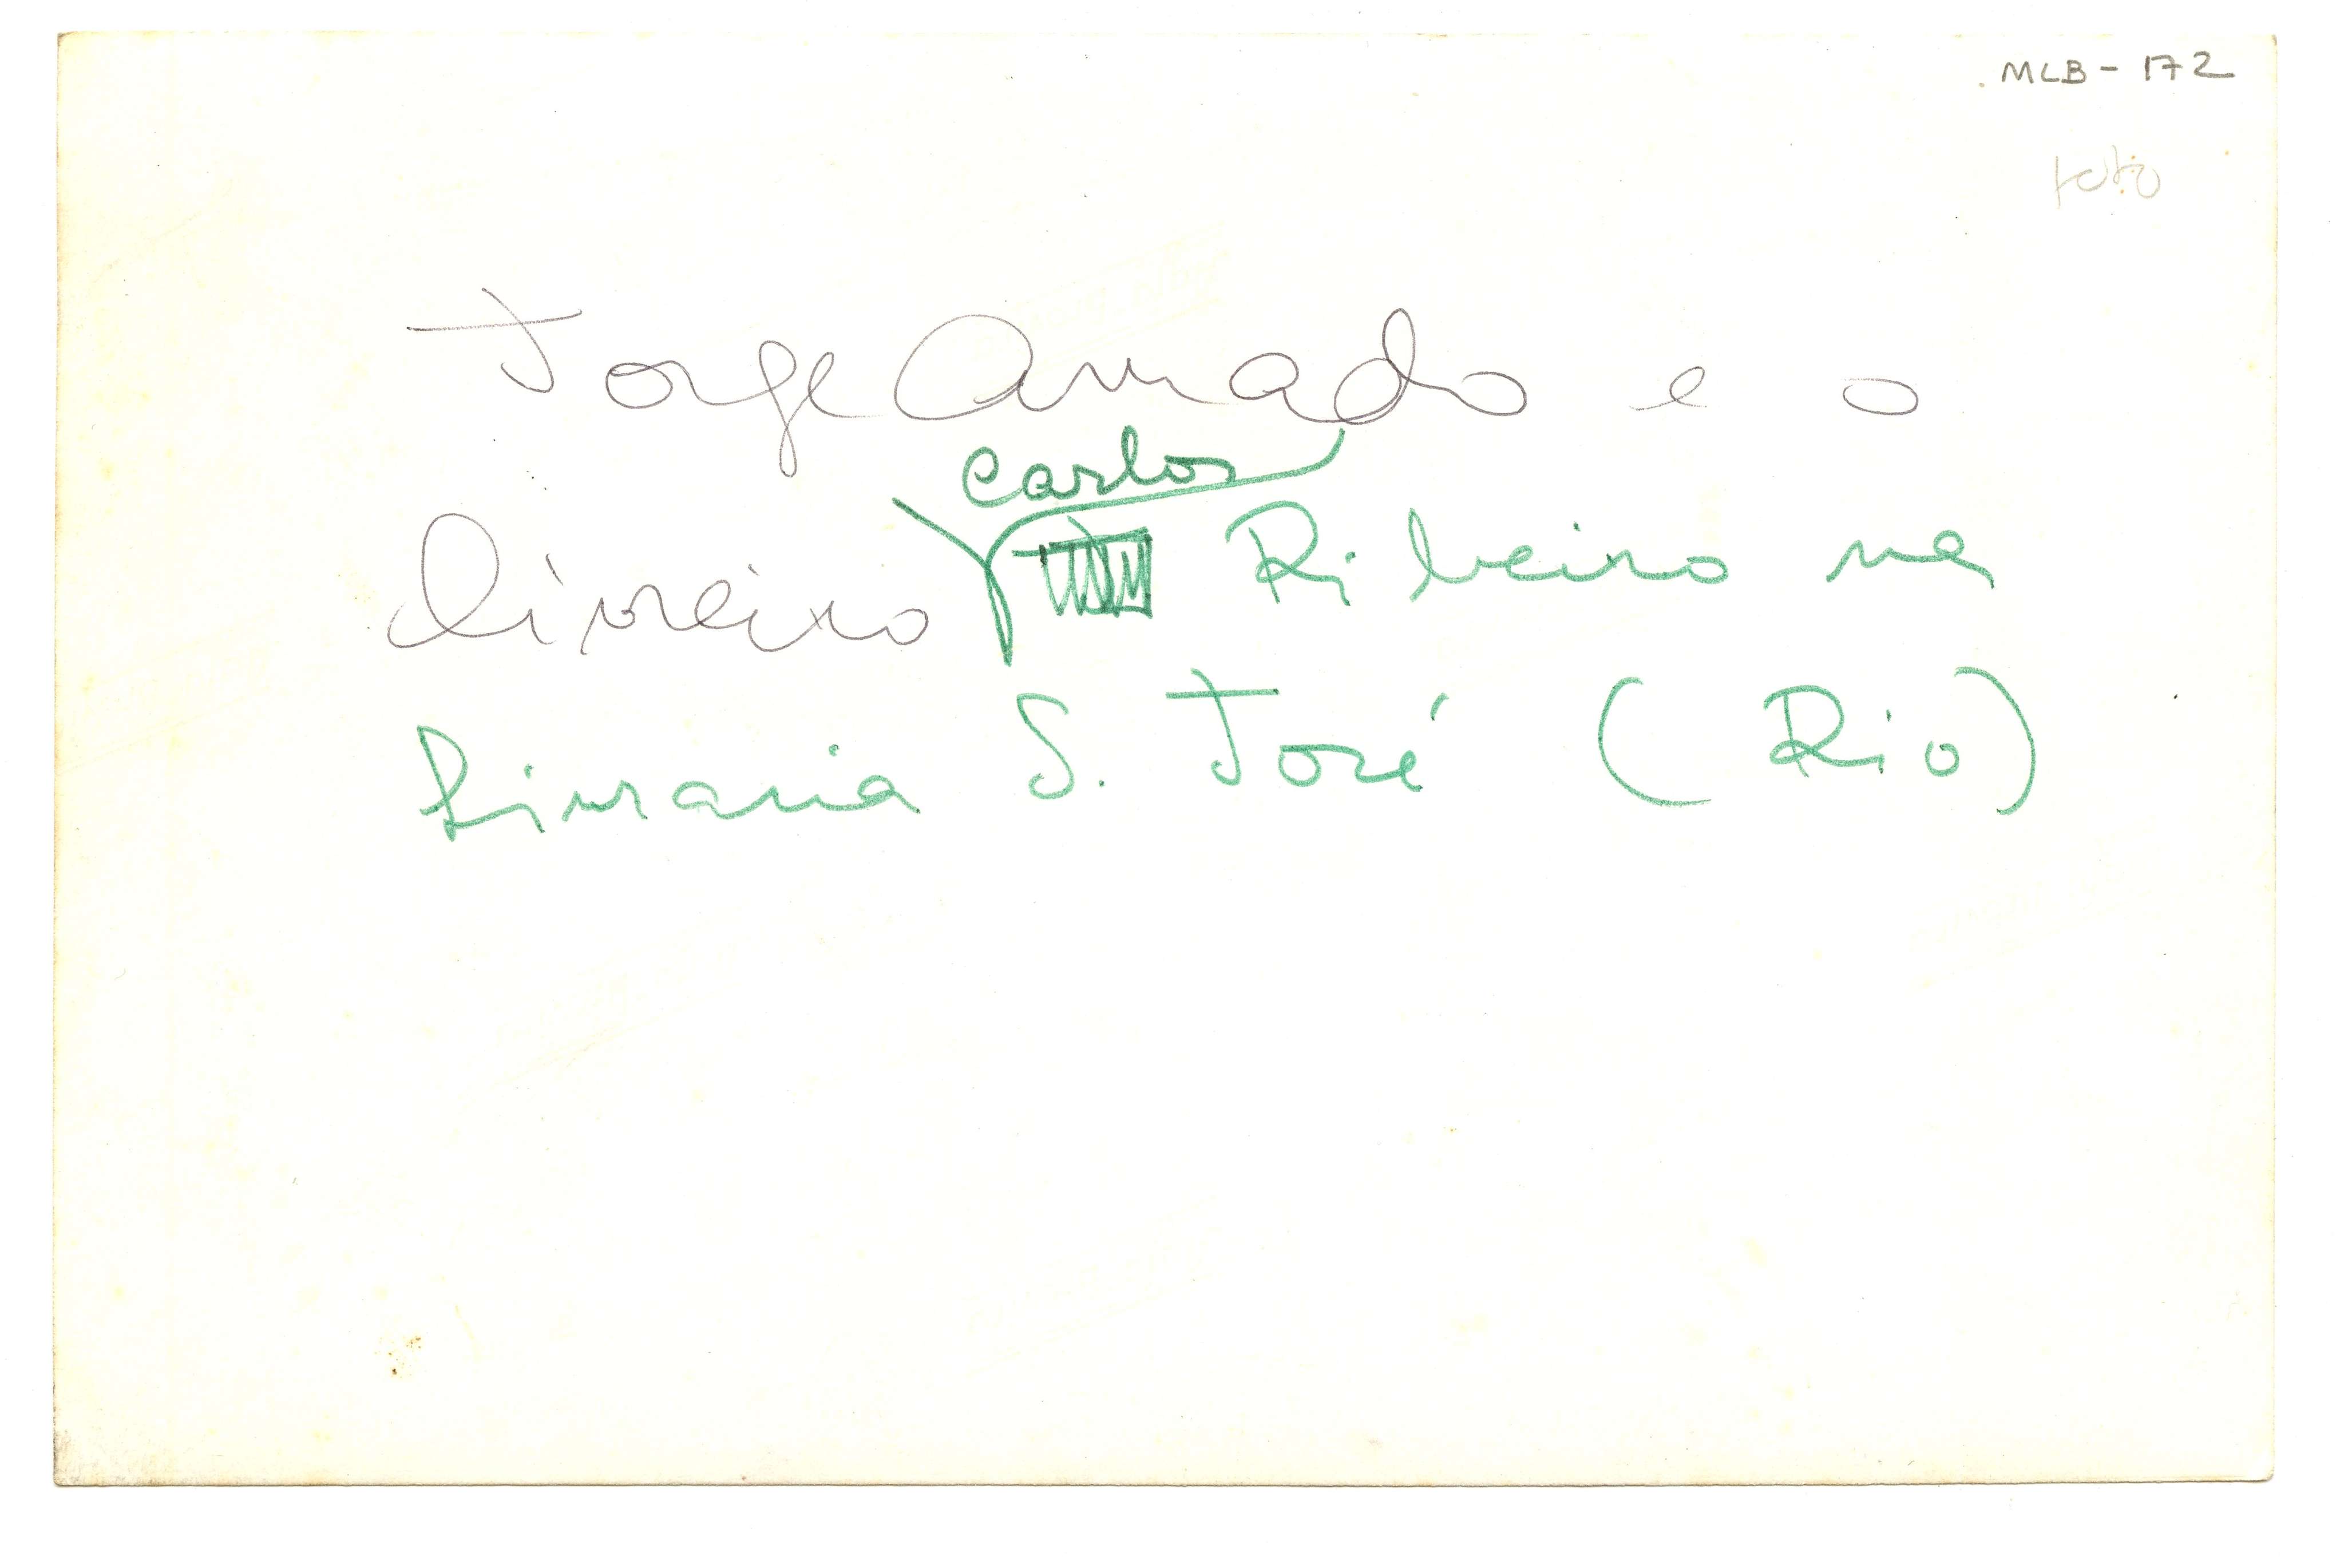 MLB-172
foto
Jorge Amado e o
Carlos
livreiro Ribeiro na
Livraria S. José (Rio)